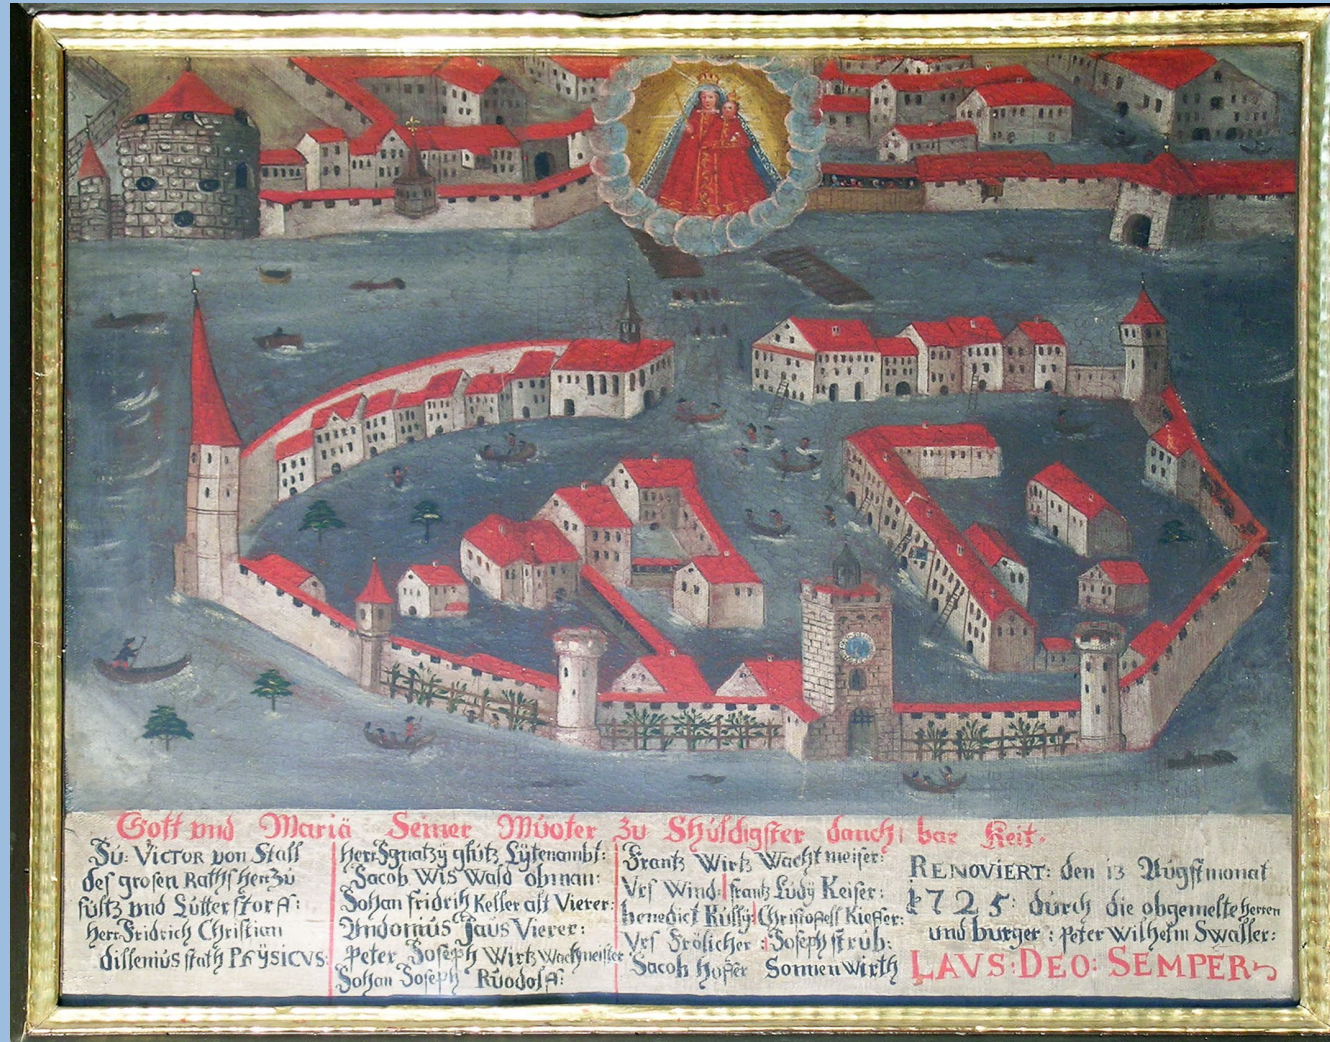 Gott vnd Mariä Seiner Muoter Zu Shuldigster danch: bar Keit.
Ju: Victor von Stall
des grosen Raths herr Zu
sultz vnd Lütterstorff:
herr Fridrich Christian
dissenius stath Phÿsicus:
herr Ignatzÿ glutz Lÿtenambt:
Jacob Wis Wald obman:
Johan fridrih Keller alt Vierer:
Andonius Jaus Vierer:
Peter Joseph Wirtz Wachtmeister
Johan Joseph Ruodolff:
Frantz Wirtz Wachtmeiser:
Vrs Wind: frantz Ludÿ Keiser:
benedict Kully: Christoffell Kieffer:
Vrs Frölicher: Joseph strub:
Jacob Hoffer Sonnen wirth
RENOVIERT: den 13 Augstmonat
1725: durch die obgemelte herren
vnd burger: Peter Wilhelm Swaller:
LAVS: DEO: SEMPER